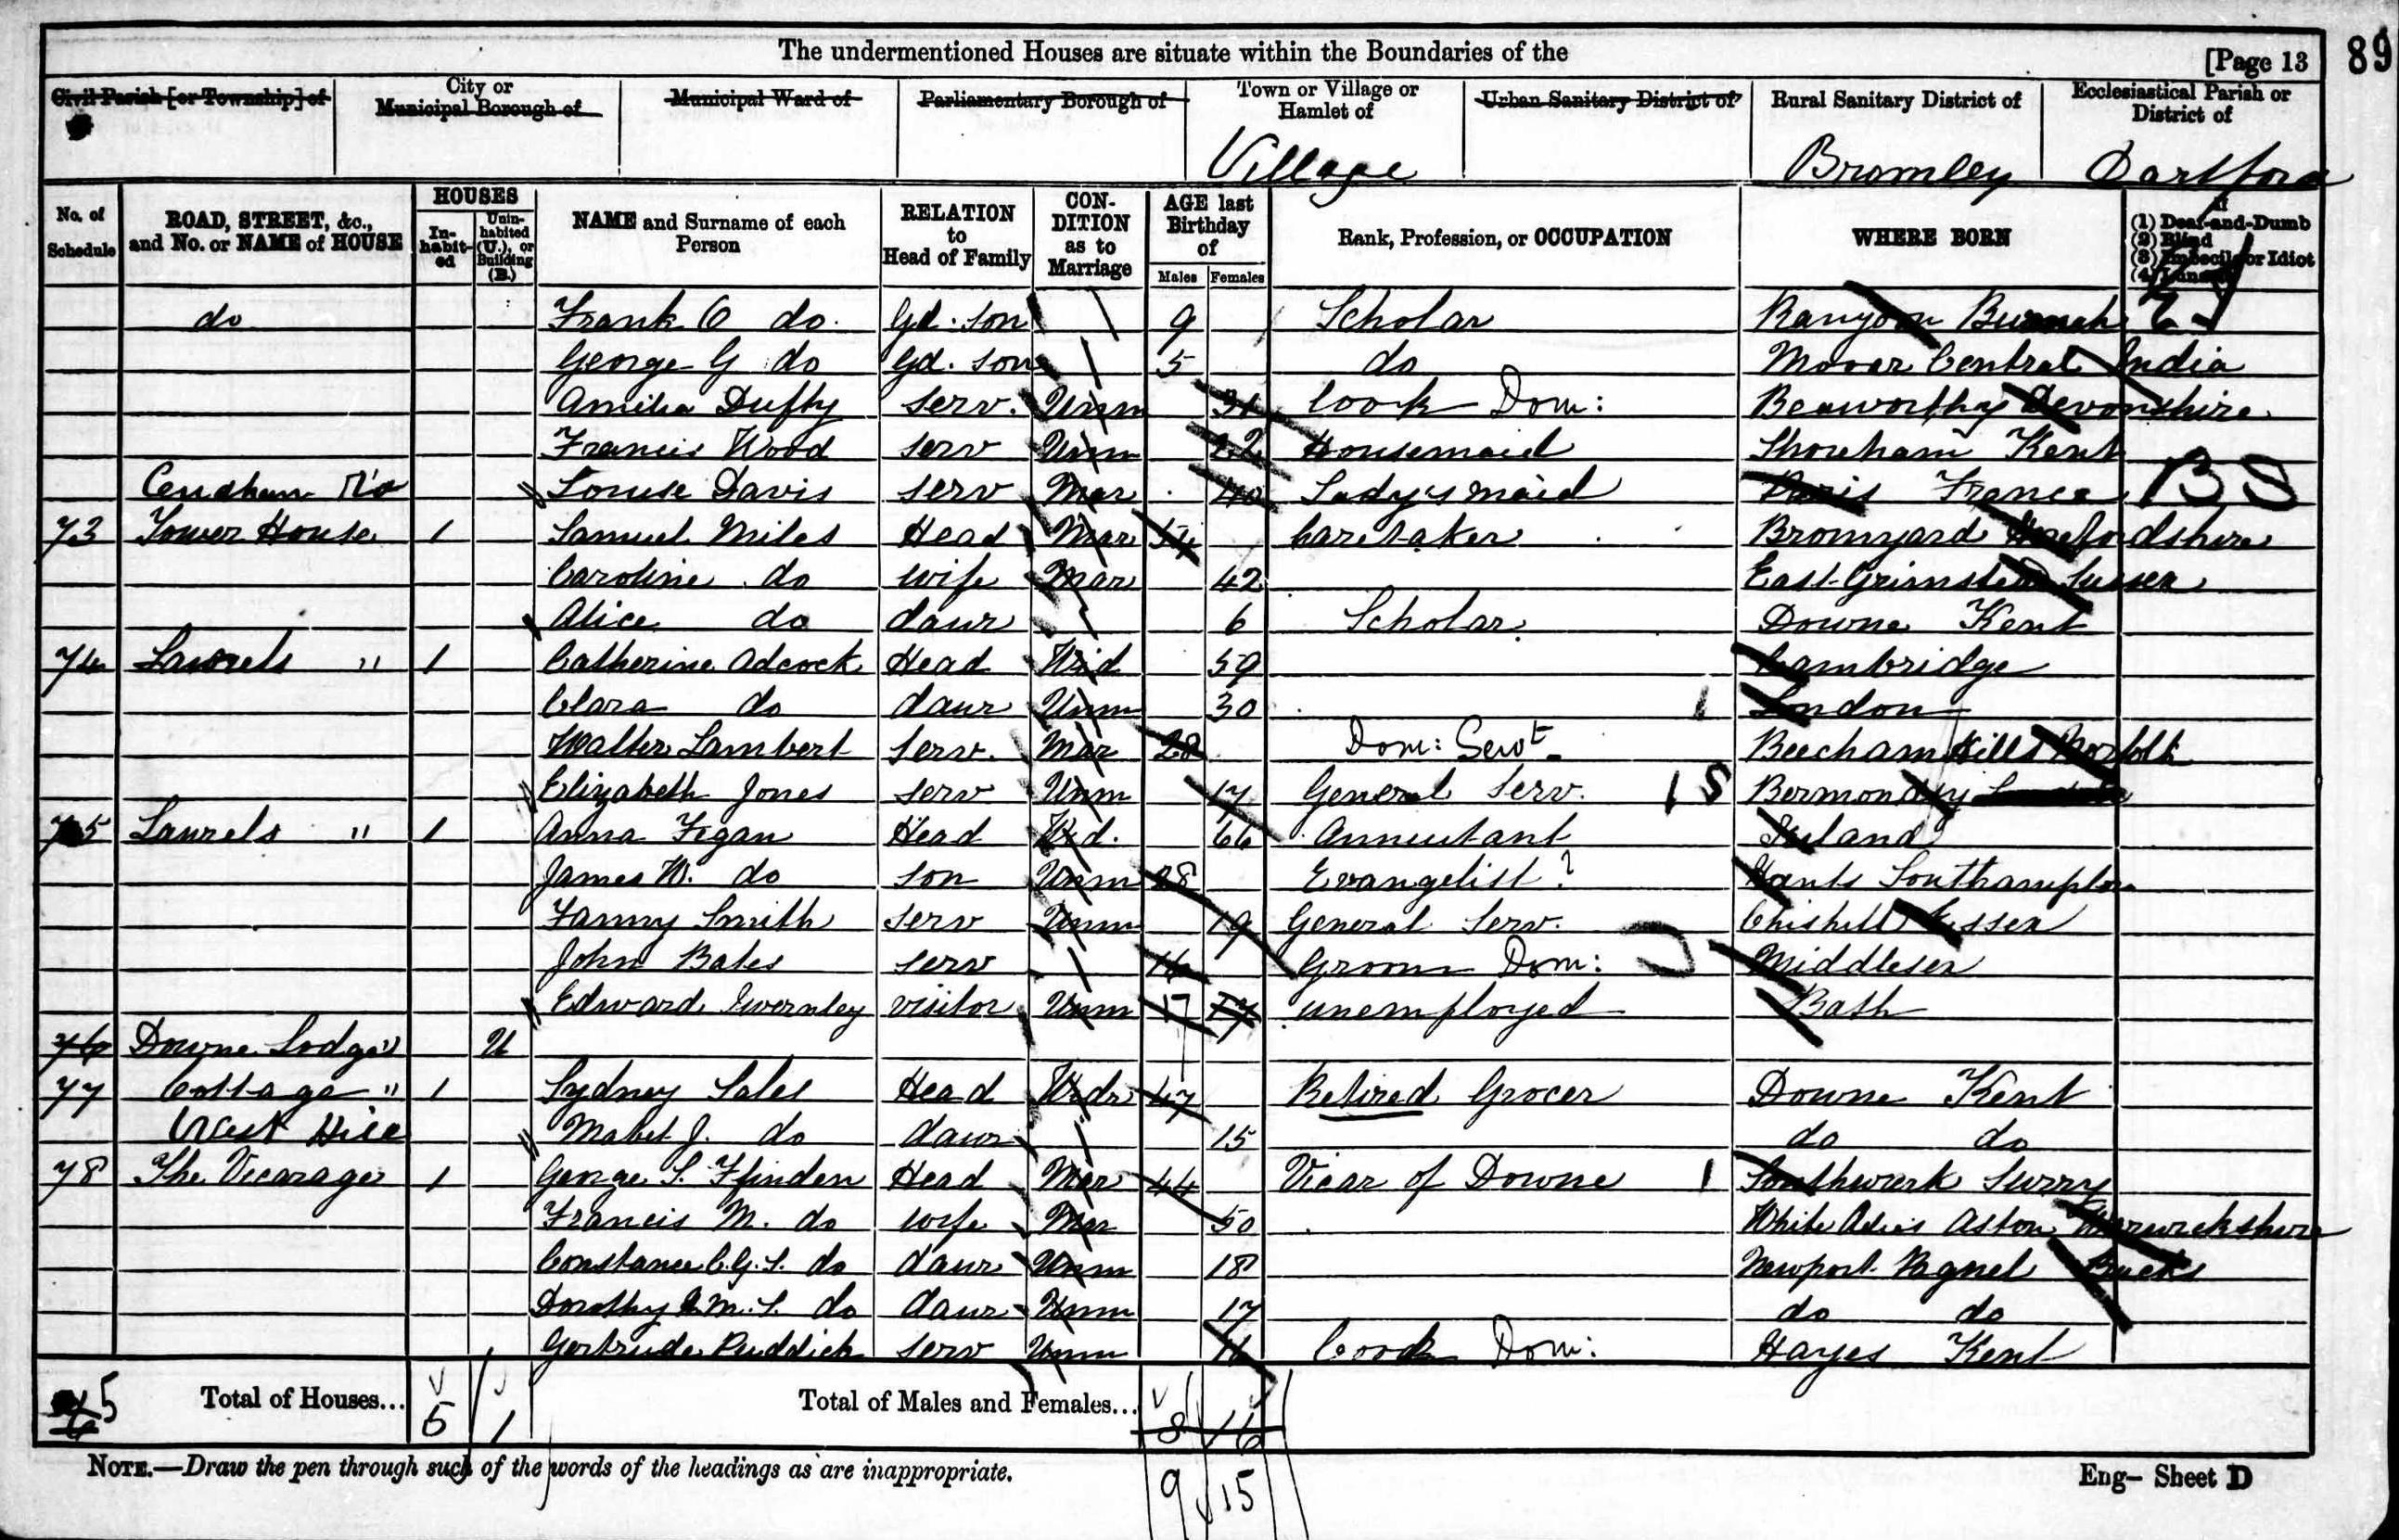 The undermentioned Houses are situate within the Boundaries of the
[Page 13
89
Civil Parish [or Township] of
City or Municipal Borough of
Municipal Ward of
Parliamentary Borough of
Town or Village or Hamlet of
Urban Sanitary District of
Rural Sanitary District of
Ecclesiastical Parish or District of
Village Bromley Dartford
No. of Schedule
ROAD, STREET, &c., and No. or NAME of HOUSE
HOUSES
In-habit-ed
Unin-habited (U.), or Building (B.)
NAME and Surname of each Person
RELATION to Head of Family
CON-DITION as to Marriage
AGE last Birthday of
Males Females
Rank, Profession, or OCCUPATION
WHERE BORN
If
(1) Deaf-and-Dumb
(2) Blind
(3) Imbecile or Idiot
(4) Lunatic
do Frank O do Gd. son 9 Scholar Rangoon Burmah
George G do Gd. son 5 do Morar Central India
Amelia Duffy serv. Unm 31 Cook Dom: Beaworthy Devonshire
Francis Wood serv Unm 22 Housemaid Shoreham Kent
Cudham Rd Louise Davis serv Mar 40 Lady's maid Paris France
73 Tower House 1 Samuel Miles Head Mar 54 Caretaker Bromyard Herefordshire
Caroline do wife Mar 42 East Grinstead Sussex
Alice do daur 6 Scholar Downe Kent
74 Laurels " 1 Catherine Adcock Head Wid 59 Cambridge
Clara do daur Unm 30 London
Walter Lambert serv. Mar 28 Dom: Servt Beecham Hills Norfolk
Elizabeth Jones serv Unm 17 General Serv. Bermondsy
75 Laurels " 1 Anna Figan Head Wid. 66 Annuitant Ireland
James W. do son Unm 28 Evangelist ? Hants Southampton
Fanny Smith serv Unm 19 General Serv. Chishill Essex
John Bates serv 16 Groom Dom: Middlesex
Edward visitor Unm 17 unemployed Bath
76 Downe Lodge " U
77 Cottage " 1 Sydney Sales Head Widr 47 Retired Grocer Downe Kent
West Hill Mabel J. do daur 15 do do
78 The Vicarage 1 George S. Ffinden Head Mar 44 Vicar of Downe Southwark Surry
Francis M. do wife Mar 50 Aston Warwickshire
Constance C.G.S. do daur Unm 18 Newport Pagnel Bucks
Dorothy M.S. do daur Unm 17 do do
Gertrude Puddick serv Unm 16 Cook Dom: Hayes Kent
5 Total of Houses... 5 1 Total of Males and Females... 8 16
9 15
NOTE.—Draw the pen through such of the words of the headings as are inappropriate.
Eng— Sheet D